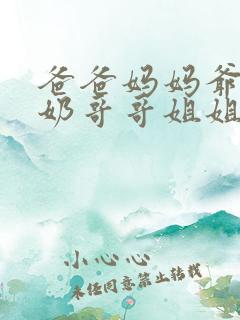 爸爸妈妈爷
奶哥哥姐姐
小心心
未经同意禁止转载